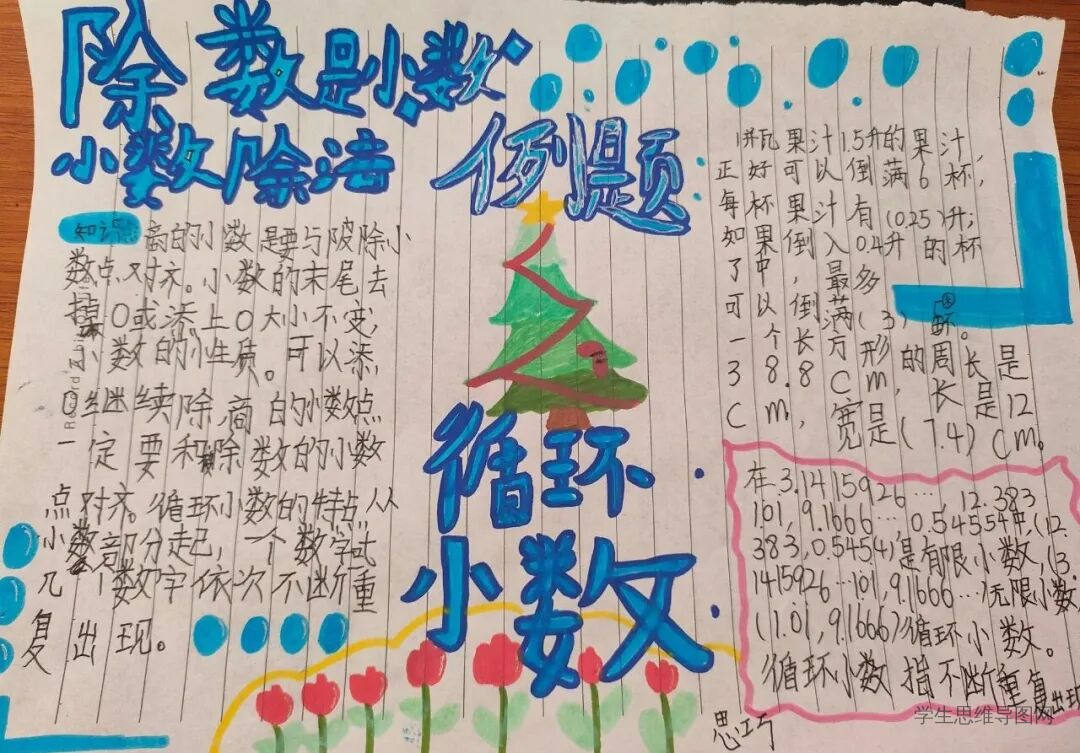 除数是小数
小数除法
例题
知识点 商的小数是要与陂除小
数点对齐。小数的末尾去
掉0或添上0大小不变,
小数的小生质。可以添,
继续除,商的小数点
一定要和除数的小数
点对齐。循环小数的特点从
小数部分起,一个数字或
几个数字依次不断重
复出现。
循环
小数
1瓶果汁1.5升的果汁,
正好可以倒满6杯,
每杯果汁有(0.25)升;
如果倒入0.4升的杯
了中,最多
可以倒满(3)杯。
一个长方形的周长是
38.8Cm,长是12
Cm,宽是(7.4)Cm。
在3.1415926…,12.383
1.01,9.1666…0.54554中,(12.
383,0.5454)是有限小数,(3.
1415926…101,9.1666…)无限小数
(1.01,9.1666)循环小数。
循环小数指不断重复出现
思巧
学生思维导图网